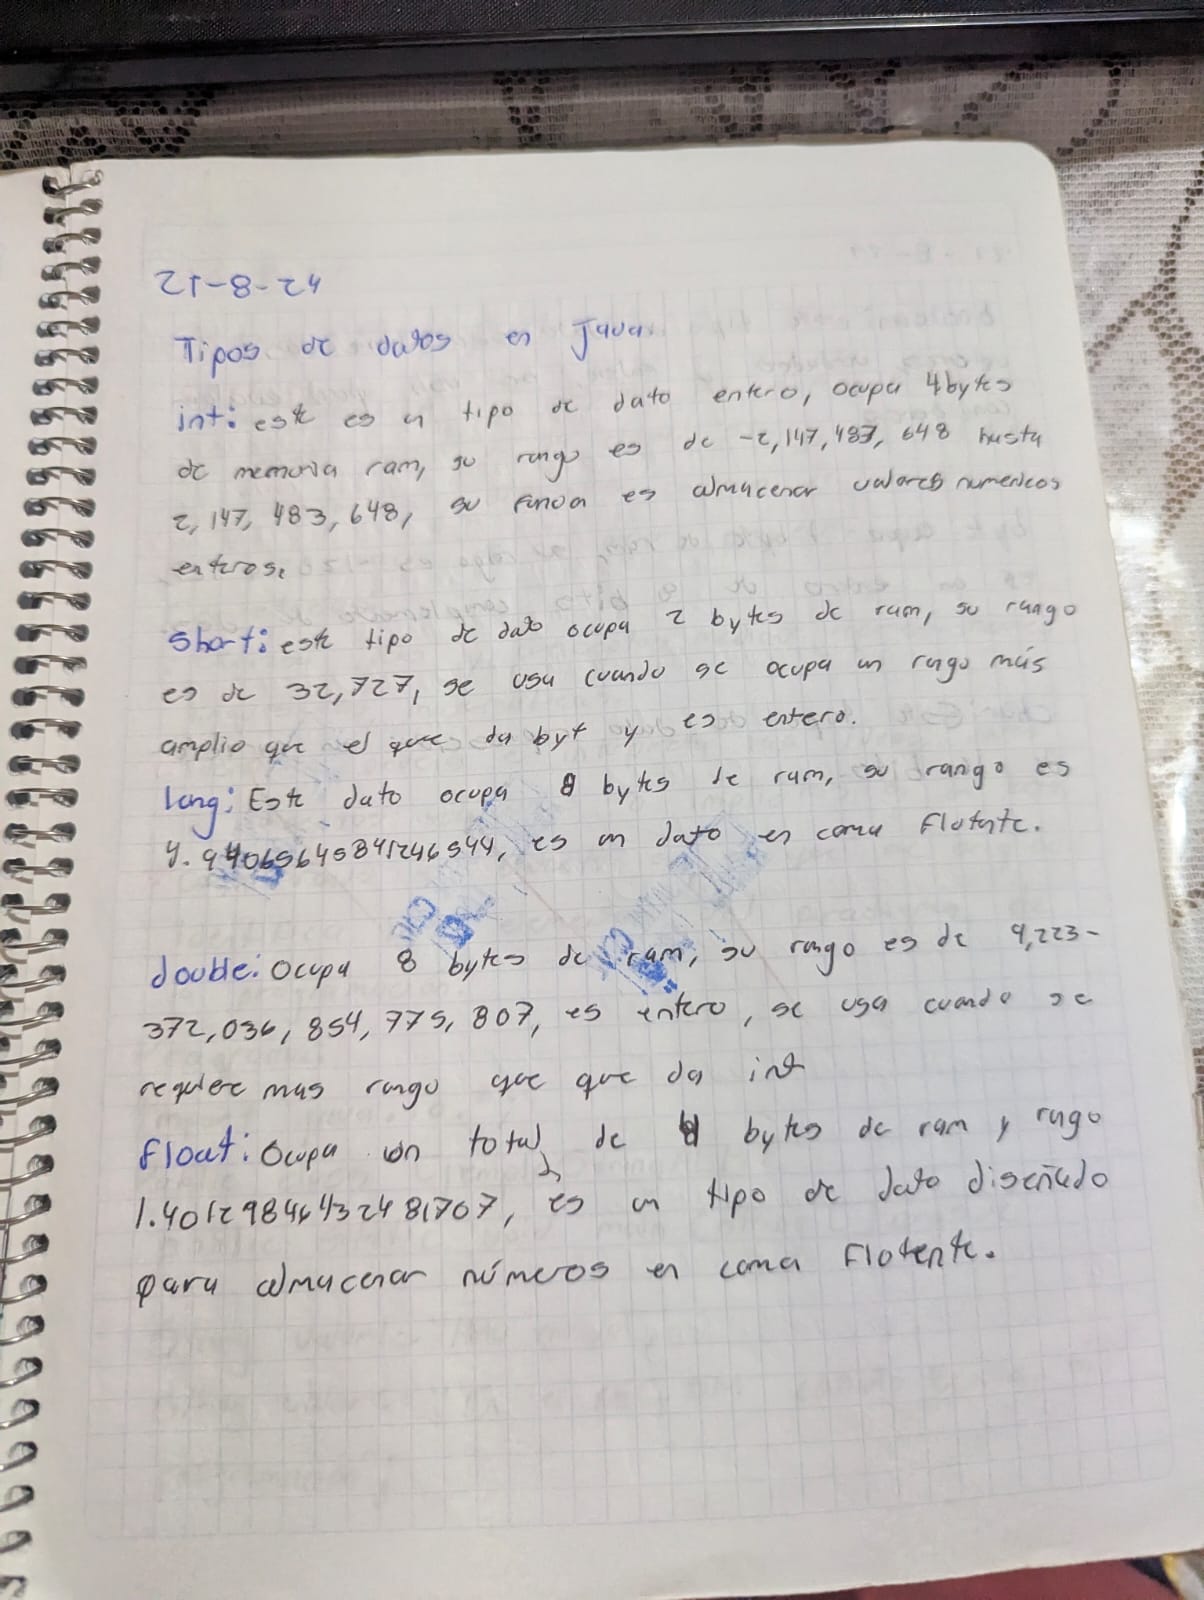 21-8-24
Tipos de datos en Java.
int: este es un tipo de dato entero, ocupa 4bytes
de memoria ram, su rango es de -2,147,483, 648 hasta
2, 147, 483, 648, su es almacenar valores numericos
enteros.
Short: este tipo de dato ocupa 2 bytes de ram, su rango
es de 32,727, se usa cuando se ocupa un rango más
amplio que el que da byt y es entero.
long: Este dato ocupa 8 bytes de ram, su rango es
4.94065645841246544, es un dato en coma flotante.
double: Ocupa 8 bytes de ram, su rango es de 9,223-
372,036, 854, 775, 807, es entero, se usa cuando se
requiere mas rango que que da int
float: Ocupa un total de 4 bytes de ram y rango
1.40129846432481707, es un tipo de dato diseñado
para almacenar números en coma flotente.